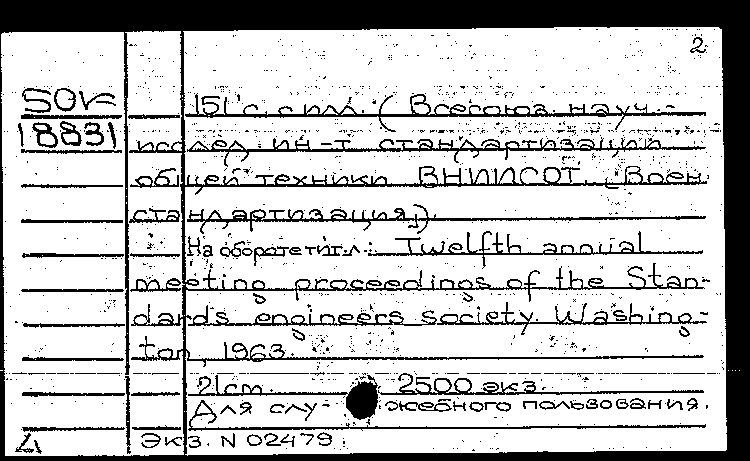 2
SOK
18831
151 с. с илл. (Всесоюз. науч.-
исслед. ин-т стандартизации
общей техники ВНИИСОТ. [Воен.
стандартизация]).
На обороте тит. л.: Twelfth annual
meeting proceedings of the Stan-
dards engineers society. Washing-
ton, 1963.
21cm. 2500 экз.
Для служебного пользования.
Экз. N 02479.